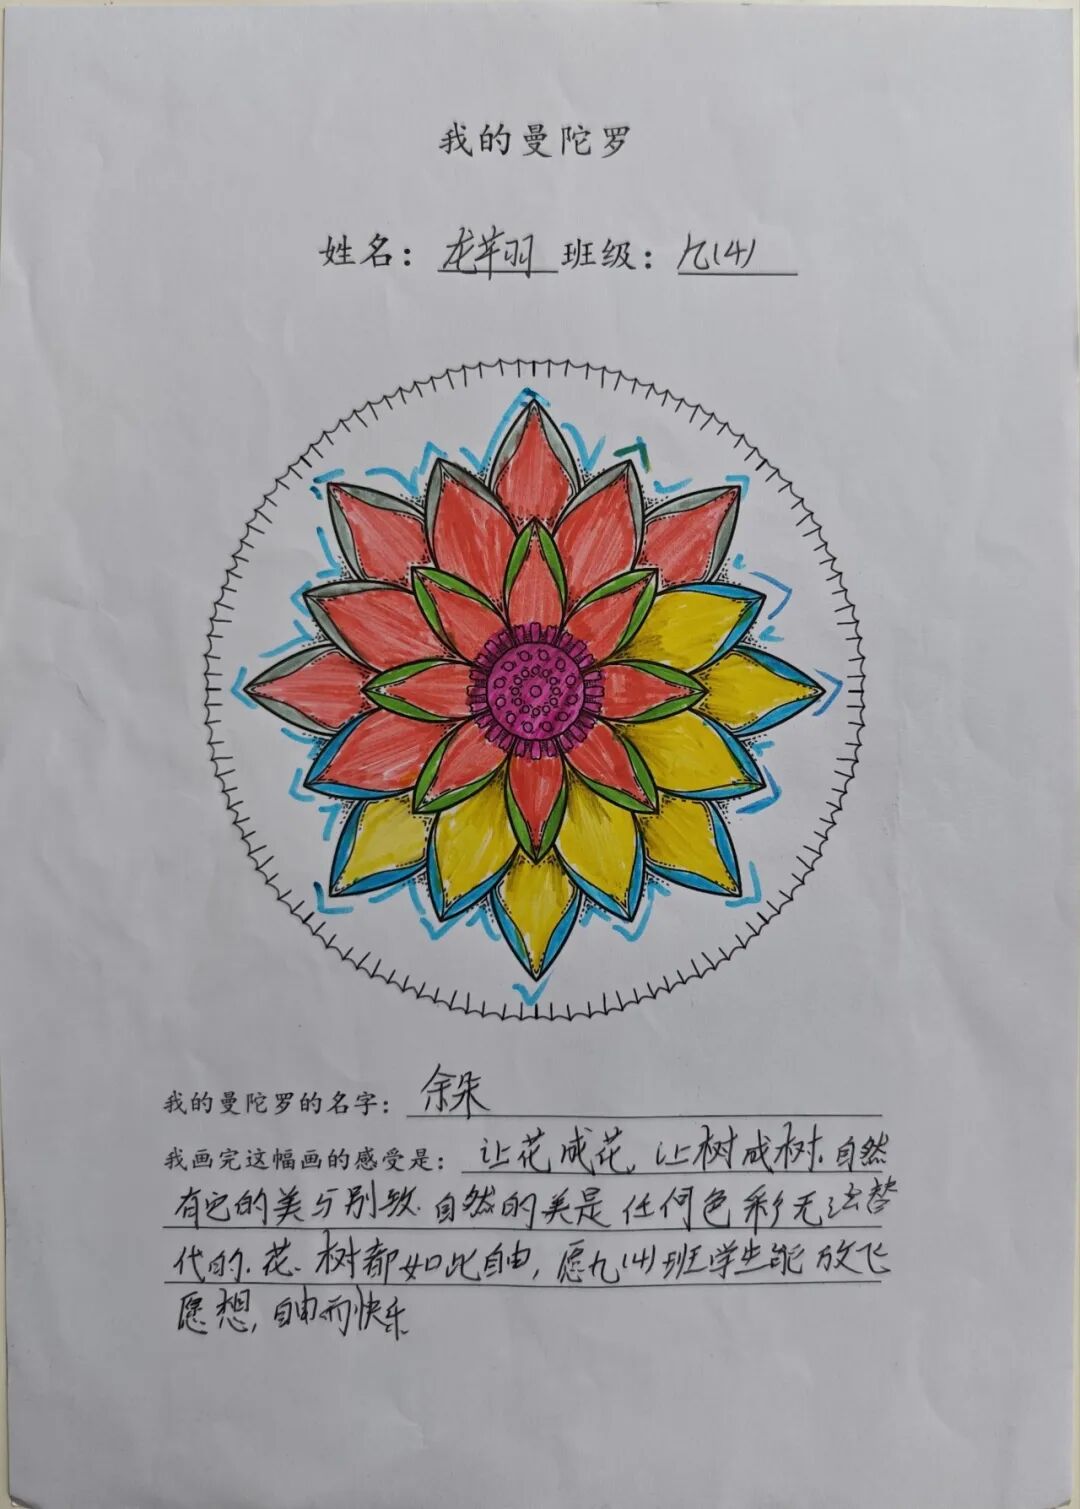 我的曼陀罗
姓名：龙芊羽 班级：九(4)
我的曼陀罗的名字：余朵
我画完这幅画的感受是：让花成花，让树成树。自然
有它的美与别致.自然的美是任何色彩无法替
代的.花、树都如此自由，愿九(4)班学生能放飞
愿想，自由而快乐